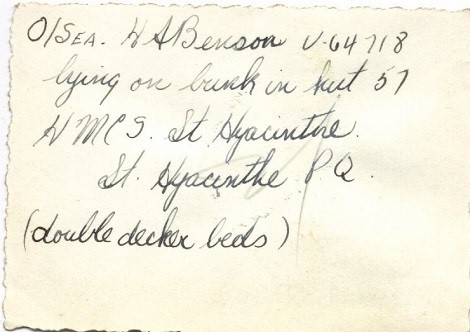 O/SEA. H A Benson V-64718
lying on bunk in hut 57
HMCS. St. Hyacinthe.
St. Hyacinthe P Q.
(double decker beds)